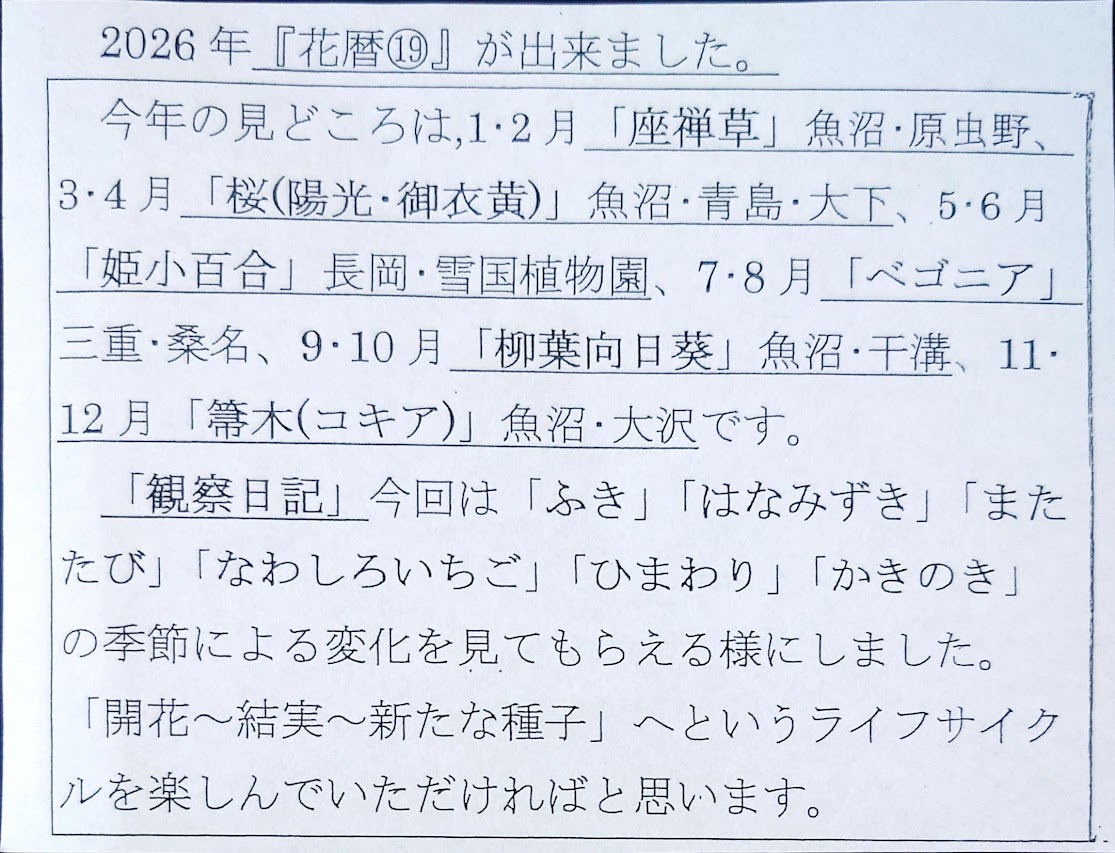 2026年『花暦⑲』が出来ました。
今年の見どころは,1·2月「座禅草」魚沼·原虫野、
3·4月「桜(陽光·御衣黄)」魚沼·青島·大下、5·6月
「姫小百合」長岡·雪国植物園、7·8月「ベゴニア」
三重·桑名、9·10月「柳葉向日葵」魚沼·干溝、11·
12月「箒木(コキア)」魚沼·大沢です。
「観察日記」今回は「ふき」「はなみずき」「また
たび」「なわしろいちご」「ひまわり」「かきのき」
の季節による変化を見てもらえる様にしました。
「開花～結実～新たな種子」へというライフサイク
ルを楽しんでいただければと思います。